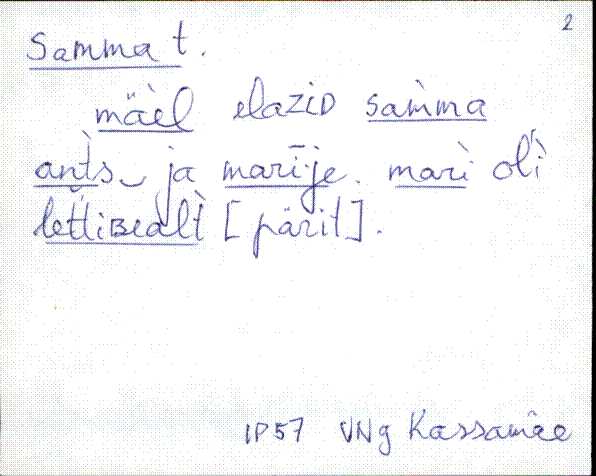 2
Samma t.
mäèl elaziD sam̀ma
an̆t̀s ja marīje. marì olì
let̆tiʙealt̀ [pärit].
IP57 VNg Kassamäe